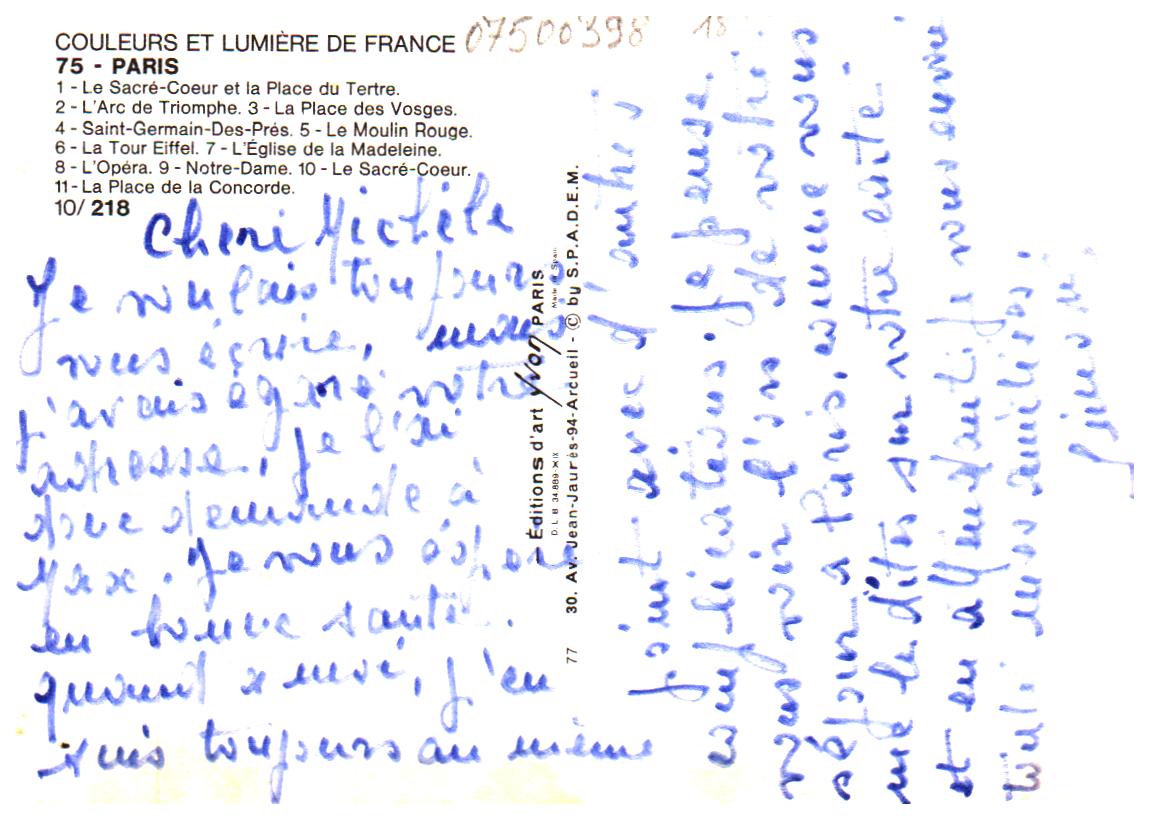 COULEURS ET LUMIÈRE DE FRANCE
07500398
18
75 - PARIS
1 - Le Sacré-Coeur et la Place du Tertre.
2 - L'Arc de Triomphe. 3 - La Place des Vosges.
4 - Saint-Germain-Des-Prés. 5 - Le Moulin Rouge.
6 - La Tour Eiffel. 7 - L'Église de la Madeleine.
8 - L'Opéra. 9 - Notre-Dame. 10 - Le Sacré-Coeur.
11 - La Place de la Concorde.
10/ 218
Cheri Michèle
Je voulais toujours
vous écrire, mais
j'avais égaré votre
adresse. Je l'ai
donc demandé à
Max. Je vous espère
en bonne santé.
quant a moi, j'en
suis toujours au même
Éditions d'art yvon PARIS
Made in Spain
D.L.B. 34.889-XIX
30. Av. Jean-Jaurès-94-Arcueil - © by S.P.A.D.E.M.
77
point avec d'autres
complications. Je pense
vous voir lors de votre
séjour a Paris, comme vous
me le dites sur votre carte
et en attendant je vous envoie
mes amitiés.